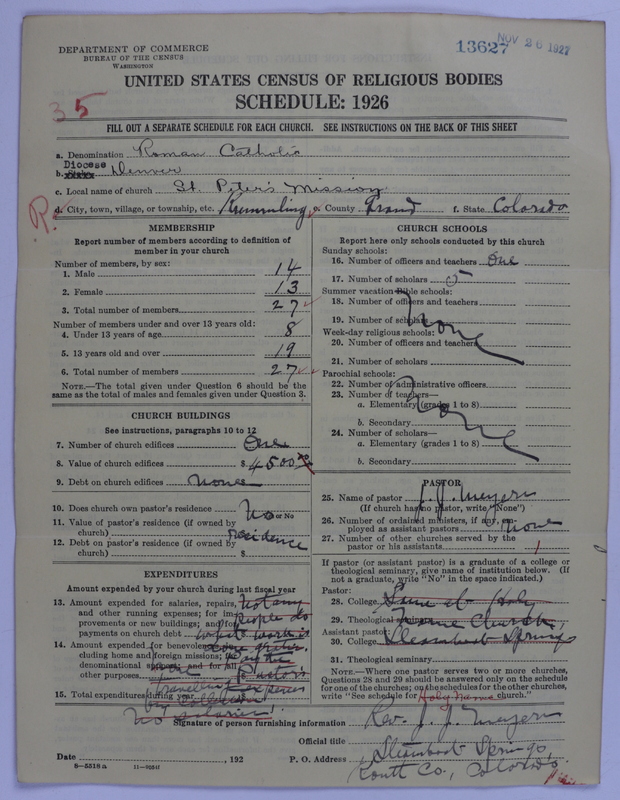 DEPARTMENT OF COMMERCE
BUREAU OF THE CENSUS
WASHINGTON
13627 NOV 26 1927
UNITED STATES CENSUS OF RELIGIOUS BODIES
SCHEDULE: 1926
35
FILL OUT A SEPARATE SCHEDULE FOR EACH CHURCH. SEE INSTRUCTIONS ON THE BACK OF THIS SHEET
a. Denomination Roman Catholic
b. Diocese Denver
c. Local name of church St. Peter's Mission
R. d. City, town, village, or township, etc. Kremmling e. County Grand f. State Colorado
MEMBERSHIP
Report number of members according to definition of
member in your church
Number of members, by sex:
1. Male 14
2. Female 13
3. Total number of members 27
Number of members under and over 13 years old:
4. Under 13 years of age 8
5. 13 years old and over 19
6. Total number of members 27
NOTE.—The total given under Question 6 should be the
same as the total of males and females given under Question 3.
CHURCH BUILDINGS
See instructions, paragraphs 10 to 12
7. Number of church edifices One
8. Value of church edifices $ 4500
9. Debt on church edifices None
10. Does church own pastor's residence No
Yes or No
11. Value of pastor's residence (if owned by
church) residence
12. Debt on pastor's residence (if owned by
church) $
EXPENDITURES
Amount expended by your church during last fiscal year
13. Amount expended for salaries, repairs, Not any
and other running expenses; for im- people do
provements or new buildings; and for
payments on church debt what work is
14. Amount expended for benevolences, in-
cluding home and foreign missions; for
denominational support; and for all
other purposes Pastor's
travelling expenses
15. Total expenditures during year by collection
No salaries!
CHURCH SCHOOLS
Report here only schools conducted by this church
Sunday schools:
16. Number of officers and teachers One
17. Number of scholars 5
Summer vacation Bible schools:
18. Number of officers and teachers
19. Number of scholars None
Week-day religious schools:
20. Number of officers and teachers
21. Number of scholars
Parochial schools:
22. Number of administrative officers
23. Number of teachers—
a. Elementary (grades 1 to 8)
b. Secondary None
24. Number of scholars—
a. Elementary (grades 1 to 8)
b. Secondary
PASTOR
25. Name of pastor J. J. Meyers
(If church has no pastor, write "None")
26. Number of ordained ministers, if any, em-
ployed as assistant pastors None
27. Number of other churches served by the
pastor or his assistants 1
If pastor (or assistant pastor) is a graduate of a college or
theological seminary, give name of institution below. (If
not a graduate, write "No" in the space indicated.)
Pastor:
28. College Same at Holy
29. Theological seminary Name Church,
Assistant pastor:
30. College Steamboat Springs
31. Theological seminary
NOTE.—Where one pastor serves two or more churches,
Questions 28 and 29 should be answered only on the schedule
for one of the churches; on the schedules for the other churches,
write "See schedule for Holy Name church."
Signature of person furnishing information Rev. J. J. Meyers
Official title
Date , 192 P. O. Address Steamboat Springs,
Routt Co., Colorado.
8—5518 a 11—9051f